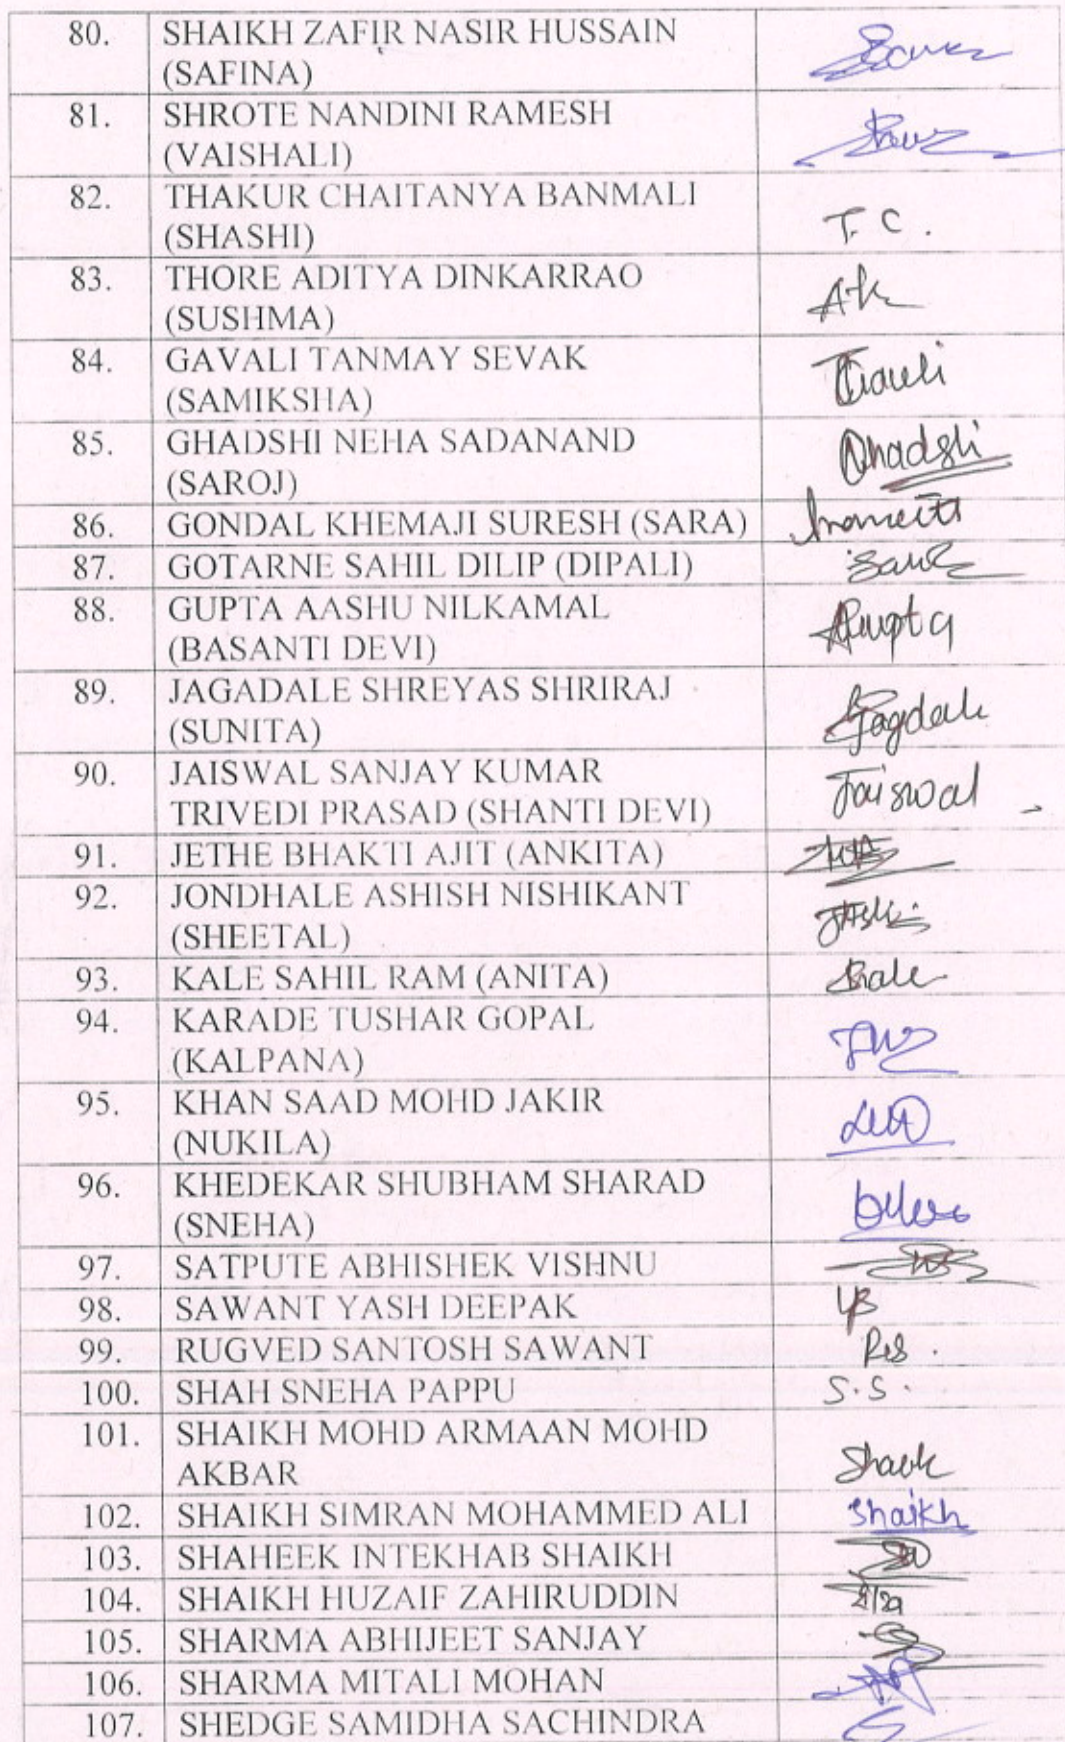 80. SHAIKH ZAFIR NASIR HUSSAIN
(SAFINA)
81. SHROTE NANDINI RAMESH
(VAISHALI)
82. THAKUR CHAITANYA BANMALI
(SHASHI) T. C.
83. THORE ADITYA DINKARRAO
(SUSHMA)
84. GAVALI TANMAY SEVAK
(SAMIKSHA)
85. GHADSHI NEHA SADANAND
(SAROJ) Ghadshi
86. GONDAL KHEMAJI SURESH (SARA)
87. GOTARNE SAHIL DILIP (DIPALI)
88. GUPTA AASHU NILKAMAL
(BASANTI DEVI) AGupta
89. JAGADALE SHREYAS SHRIRAJ
(SUNITA) Jagdale
90. JAISWAL SANJAY KUMAR
TRIVEDI PRASAD (SHANTI DEVI) Jaiswal
91. JETHE BHAKTI AJIT (ANKITA)
92. JONDHALE ASHISH NISHIKANT
(SHEETAL)
93. KALE SAHIL RAM (ANITA)
94. KARADE TUSHAR GOPAL
(KALPANA)
95. KHAN SAAD MOHD JAKIR
(NUKILA)
96. KHEDEKAR SHUBHAM SHARAD
(SNEHA)
97. SATPUTE ABHISHEK VISHNU
98. SAWANT YASH DEEPAK
99. RUGVED SANTOSH SAWANT
100. SHAH SNEHA PAPPU S.S.
101. SHAIKH MOHD ARMAAN MOHD
AKBAR
102. SHAIKH SIMRAN MOHAMMED ALI Shaikh
103. SHAHEEK INTEKHAB SHAIKH
104. SHAIKH HUZAIF ZAHIRUDDIN
105. SHARMA ABHIJEET SANJAY
106. SHARMA MITALI MOHAN
107. SHEDGE SAMIDHA SACHINDRA